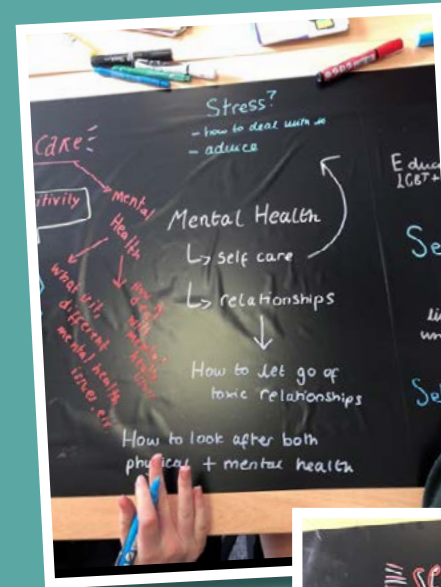 Stress?
- how to deal with
- advice
care:
itivity
mental
Health
what
different
mental health
Mental Health
↳ self care
↳ relationships
How to let go of
toxic relationships
How to look after both
physical + mental health
Educ
LGBT+
Se
li
un
Se